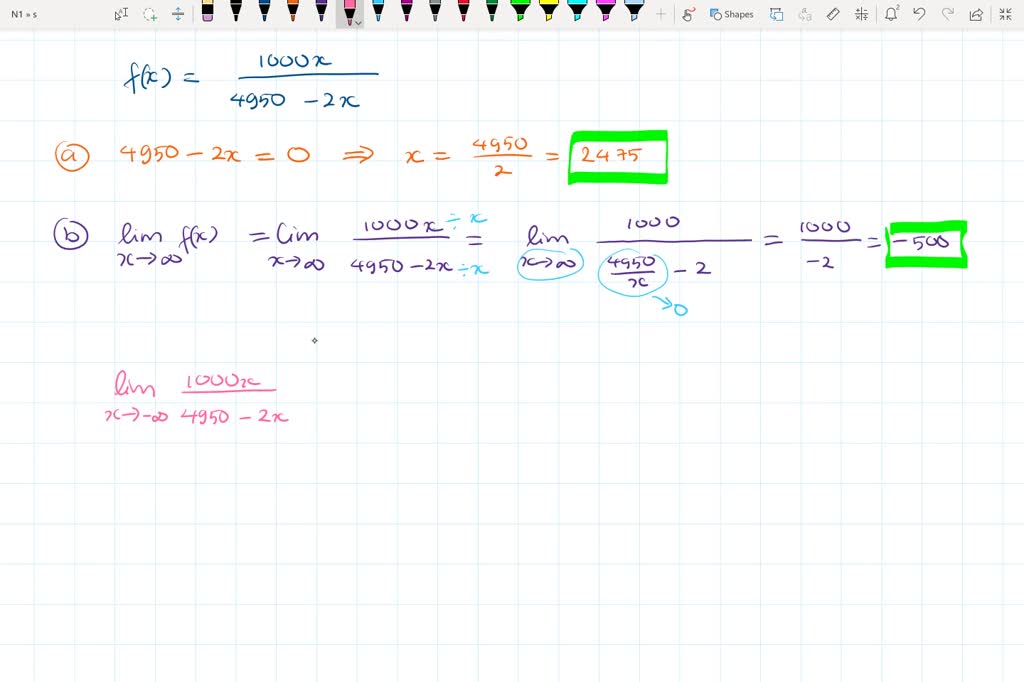 N1 » s
Shapes
f(x) = 1000x / (4950 - 2x)
(a) 4950 - 2x = 0 ⇒ x = 4950/2 = 2475
(b) lim x→∞ f(x) = lim x→∞ 1000x ÷ x / (4950 - 2x ÷ x) = lim x→∞ 1000 / (4950/x - 2) = 1000 / -2 = -500
→ 0
lim x→-∞ 1000x / (4950 - 2x)